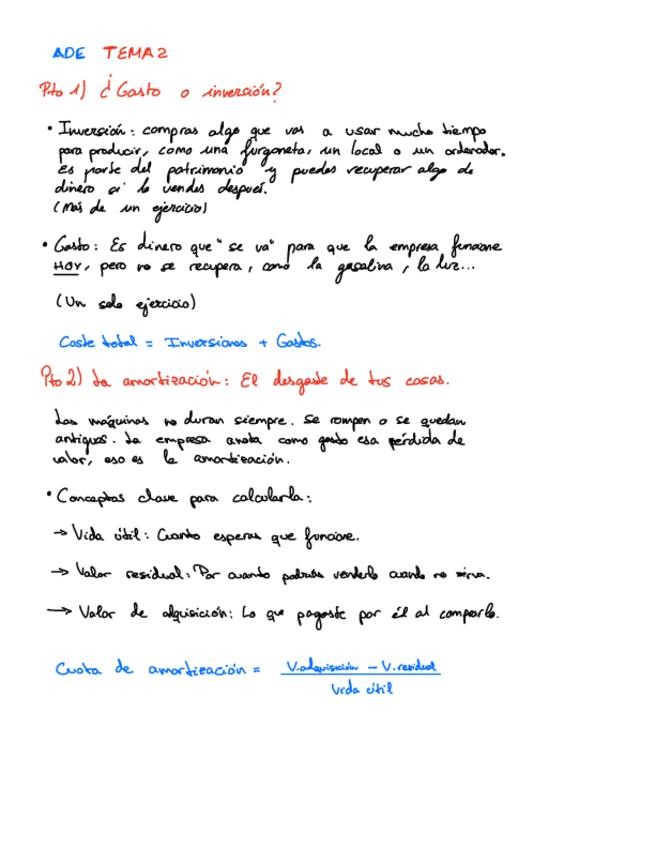 ADE TEMA 2
Pto 1) ¿Gasto o inversión?
• Inversión: compras algo que vas a usar mucho tiempo
para producir, como una furgoneta, un local o un ordenador.
Es parte del patrimonio y puedes recuperar algo de
dinero si lo vendes después.
(Más de un ejercicio)
• Gasto: Es dinero que "se va" para que la empresa funcione
HOY, pero no se recupera, como la gasolina, la luz...
(Un solo ejercicio)
Coste total = Inversiones + Gastos.
Pto 2) La amortización: El desgaste de tus cosas.
Las máquinas no duran siempre. Se rompen o se quedan
antiguas. La empresa anota como gasto esa pérdida de
valor, eso es la amortización.
• Conceptos clave para calcularla:
→ Vida útil: Cuanto esperas que funcione.
→ Valor residual: Por cuanto podrías venderlo cuando no sirva.
→ Valor de adquisición: Lo que pagaste por él al comprarlo.
Cuota de amortización = V.adquisición - V.residual
Vida útil